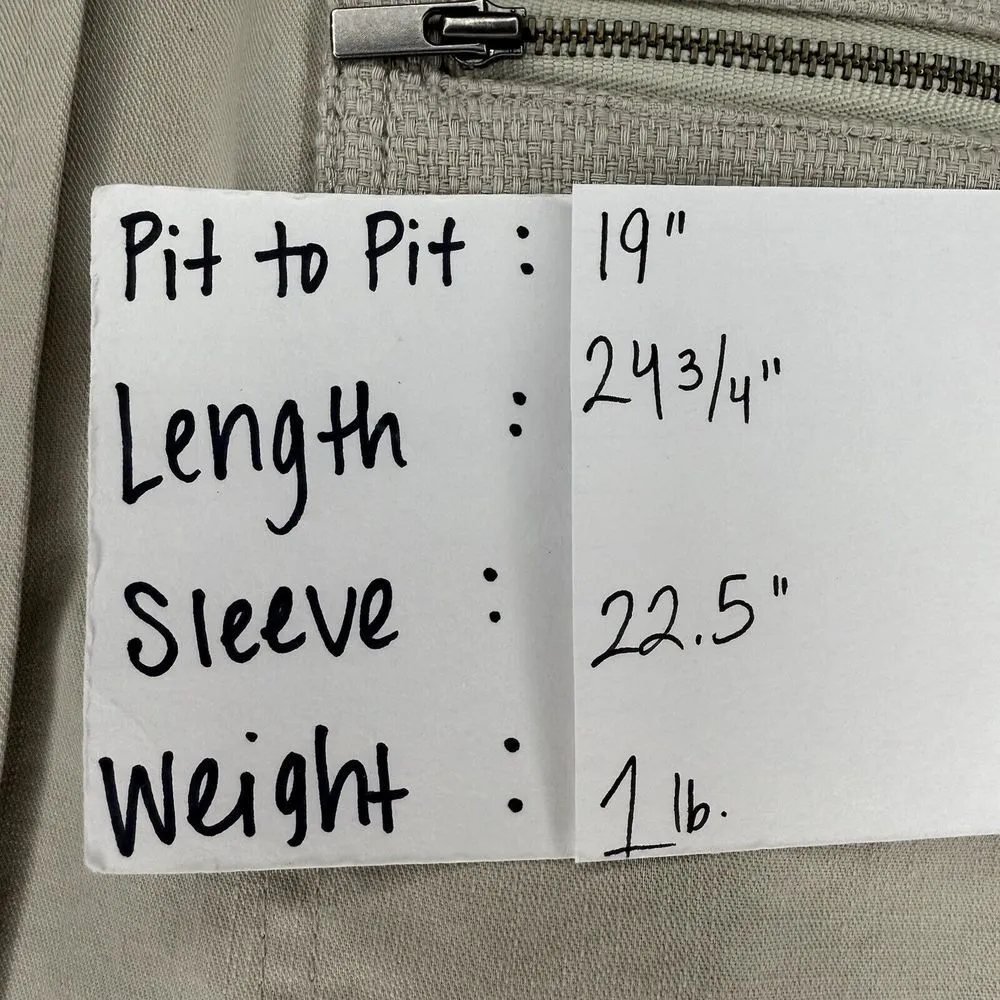 Pit to Pit : 19"
Length : 24 3/4"
Sleeve : 22.5"
Weight : 1 lb.